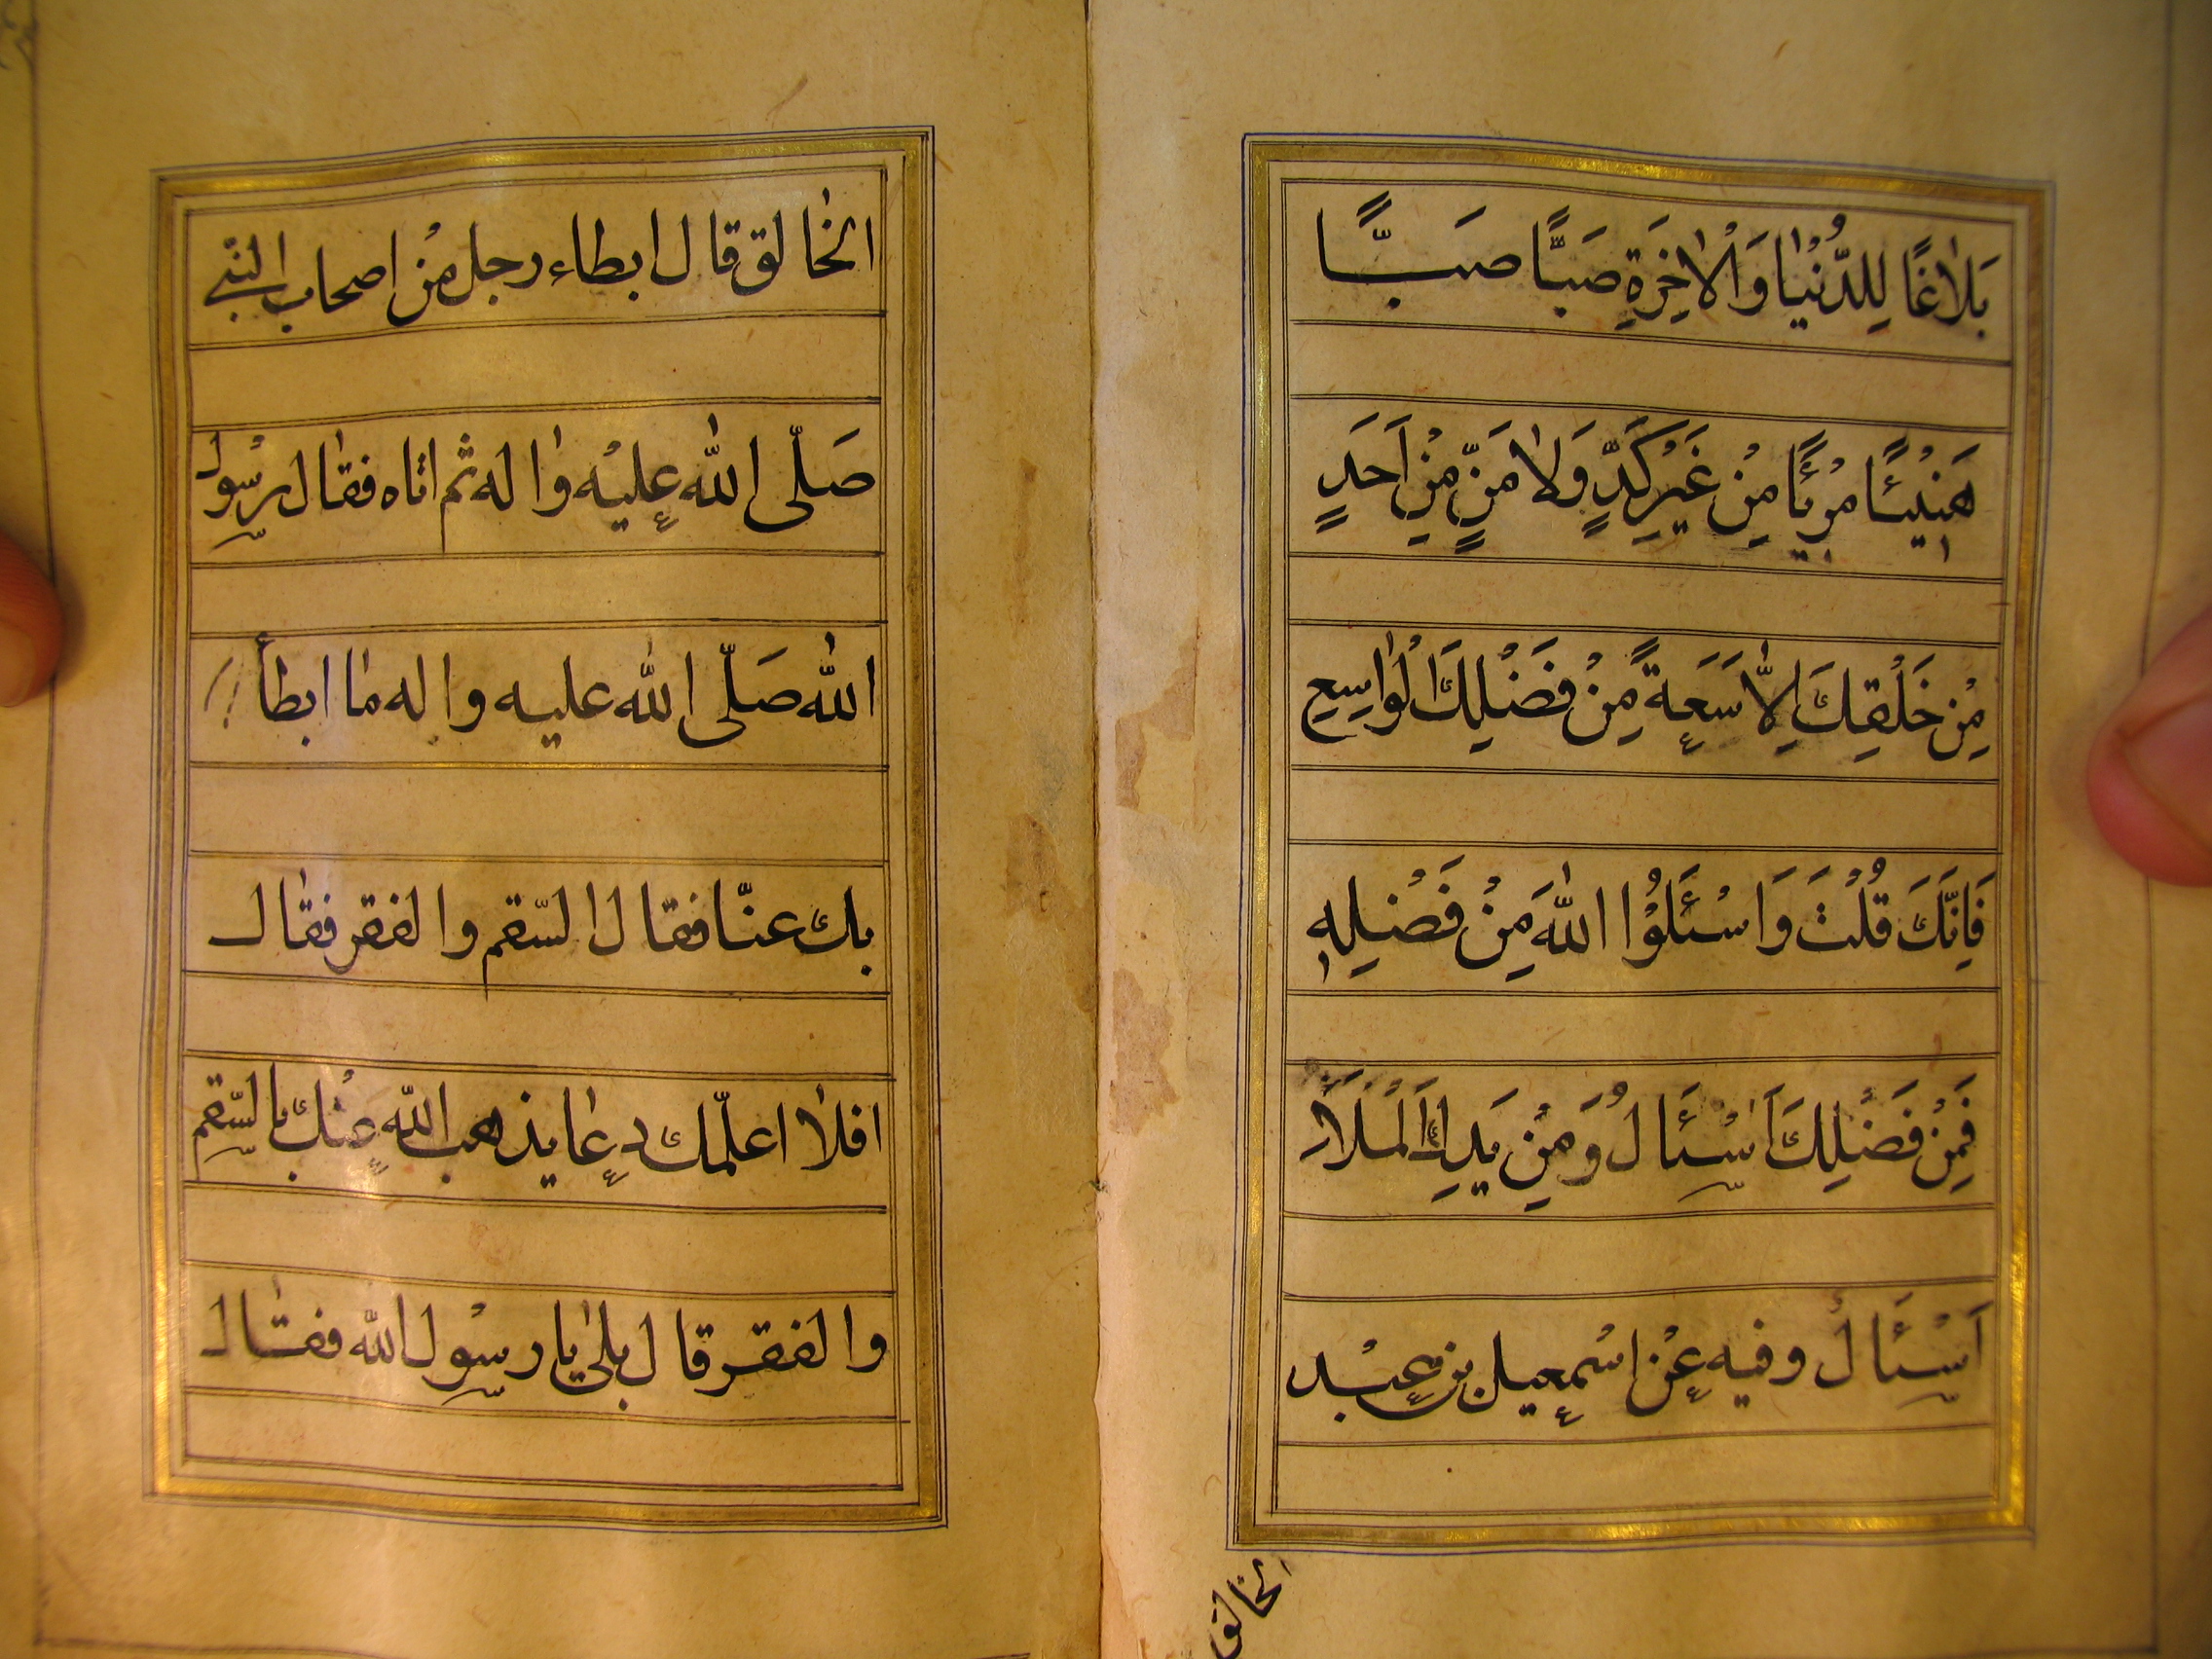 بَلٰاغًا لِلدُّنْيٰا وَالْاٰخِرَةِ صَبًّا صَبًّا
هَنٖيْئًا مَرٖيْئًا مِنْ غَيْرِ كَدٍّ وَلٰا مَنٍّ مِنْ اَحَدٍ
مِنْ خَلْقِكَ اِلّٰا سَعَةً مِنْ فَضْلِكَ الْوٰاسِعِ
فَاِنَّكَ قُلْتَ وَاسْئَلُوْا اللّٰهَ مِنْ فَضْلِهٖ
فَمِنْ فَضْلِكَ اَسْئَالُ وَمِنْ يَدِكَ الْمَلَاْءِ
اَسْئَالُ وفيه عن اسْمعيل بن عبْد
الخالق
الخٰالق قال ابطاء رجل منْ اصحاب النّبي
صَلّى اللّٰه عليْه واٰله ثم اتاه فقال رسُول
اللّٰه صَلّى اللّٰه عليه واله مٰا ابطأ
بك عنّا فقال السّقم والفقر فقٰال
افلٰا اعلّمك دعٰا يذهب اللّٰه عنْك بالسّقم
والفقر قال بلىٰ يٰا رسُول اللّٰه فقٰال